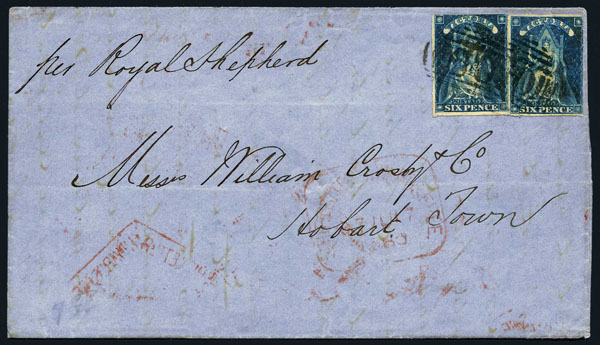 VICTORIA VICTORIA
SIX PENCE SIX PENCE
per Royal Shepherd
Messrs William Crosby & Co
Hobart Town